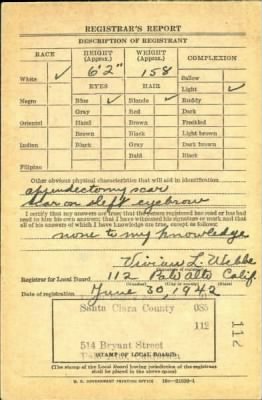 REGISTRAR'S REPORT
DESCRIPTION OF REGISTRANT
RACE HEIGHT (Approx.) WEIGHT (Approx.) COMPLEXION
White ✓ 6'2" 158 Sallow
EYES HAIR Light ✓
Negro Blue ✓ Blonde ✓ Ruddy
Gray Red Dark
Oriental Hazel Brown Freckled
Brown Black Light brown
Indian Black Gray Dark brown
Bald Black
Filipino
Other obvious physical characteristics that will aid in identification
appendectomy scar
scar on left eyebrow
I certify that my answers are true; that the person registered has read or has had
read to him his own answers; that I have witnessed his signature or mark and that
all of his answers of which I have knowledge are true, except as follows:
none to my knowledge
Vivian L. Webbe
Registrar for Local Board 112 Palo Alto Calif.
(Number) (City or county) (State)
Date of registration June 30, 1942
Santa Clara County 085
112
514 Bryant Street
(STAMP OF LOCAL BOARD)
112
(The stamp of the Local Board having jurisdiction of the registrant
shall be placed in the above space)
U. S. GOVERNMENT PRINTING OFFICE 16—21630-1